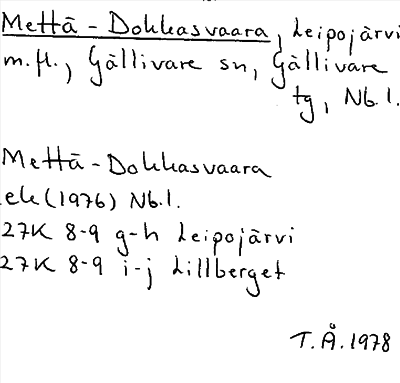 Mettä-Dokkasvaara, Leipojärvi
m.fl., Gällivare sn, Gällivare
tg, Nb.l.
Mettä-Dokkasvaara
ek (1976) Nb.l.
27K 8-9 g-h Leipojärvi
27K 8-9 i-j Lillberget
T.Å. 1978